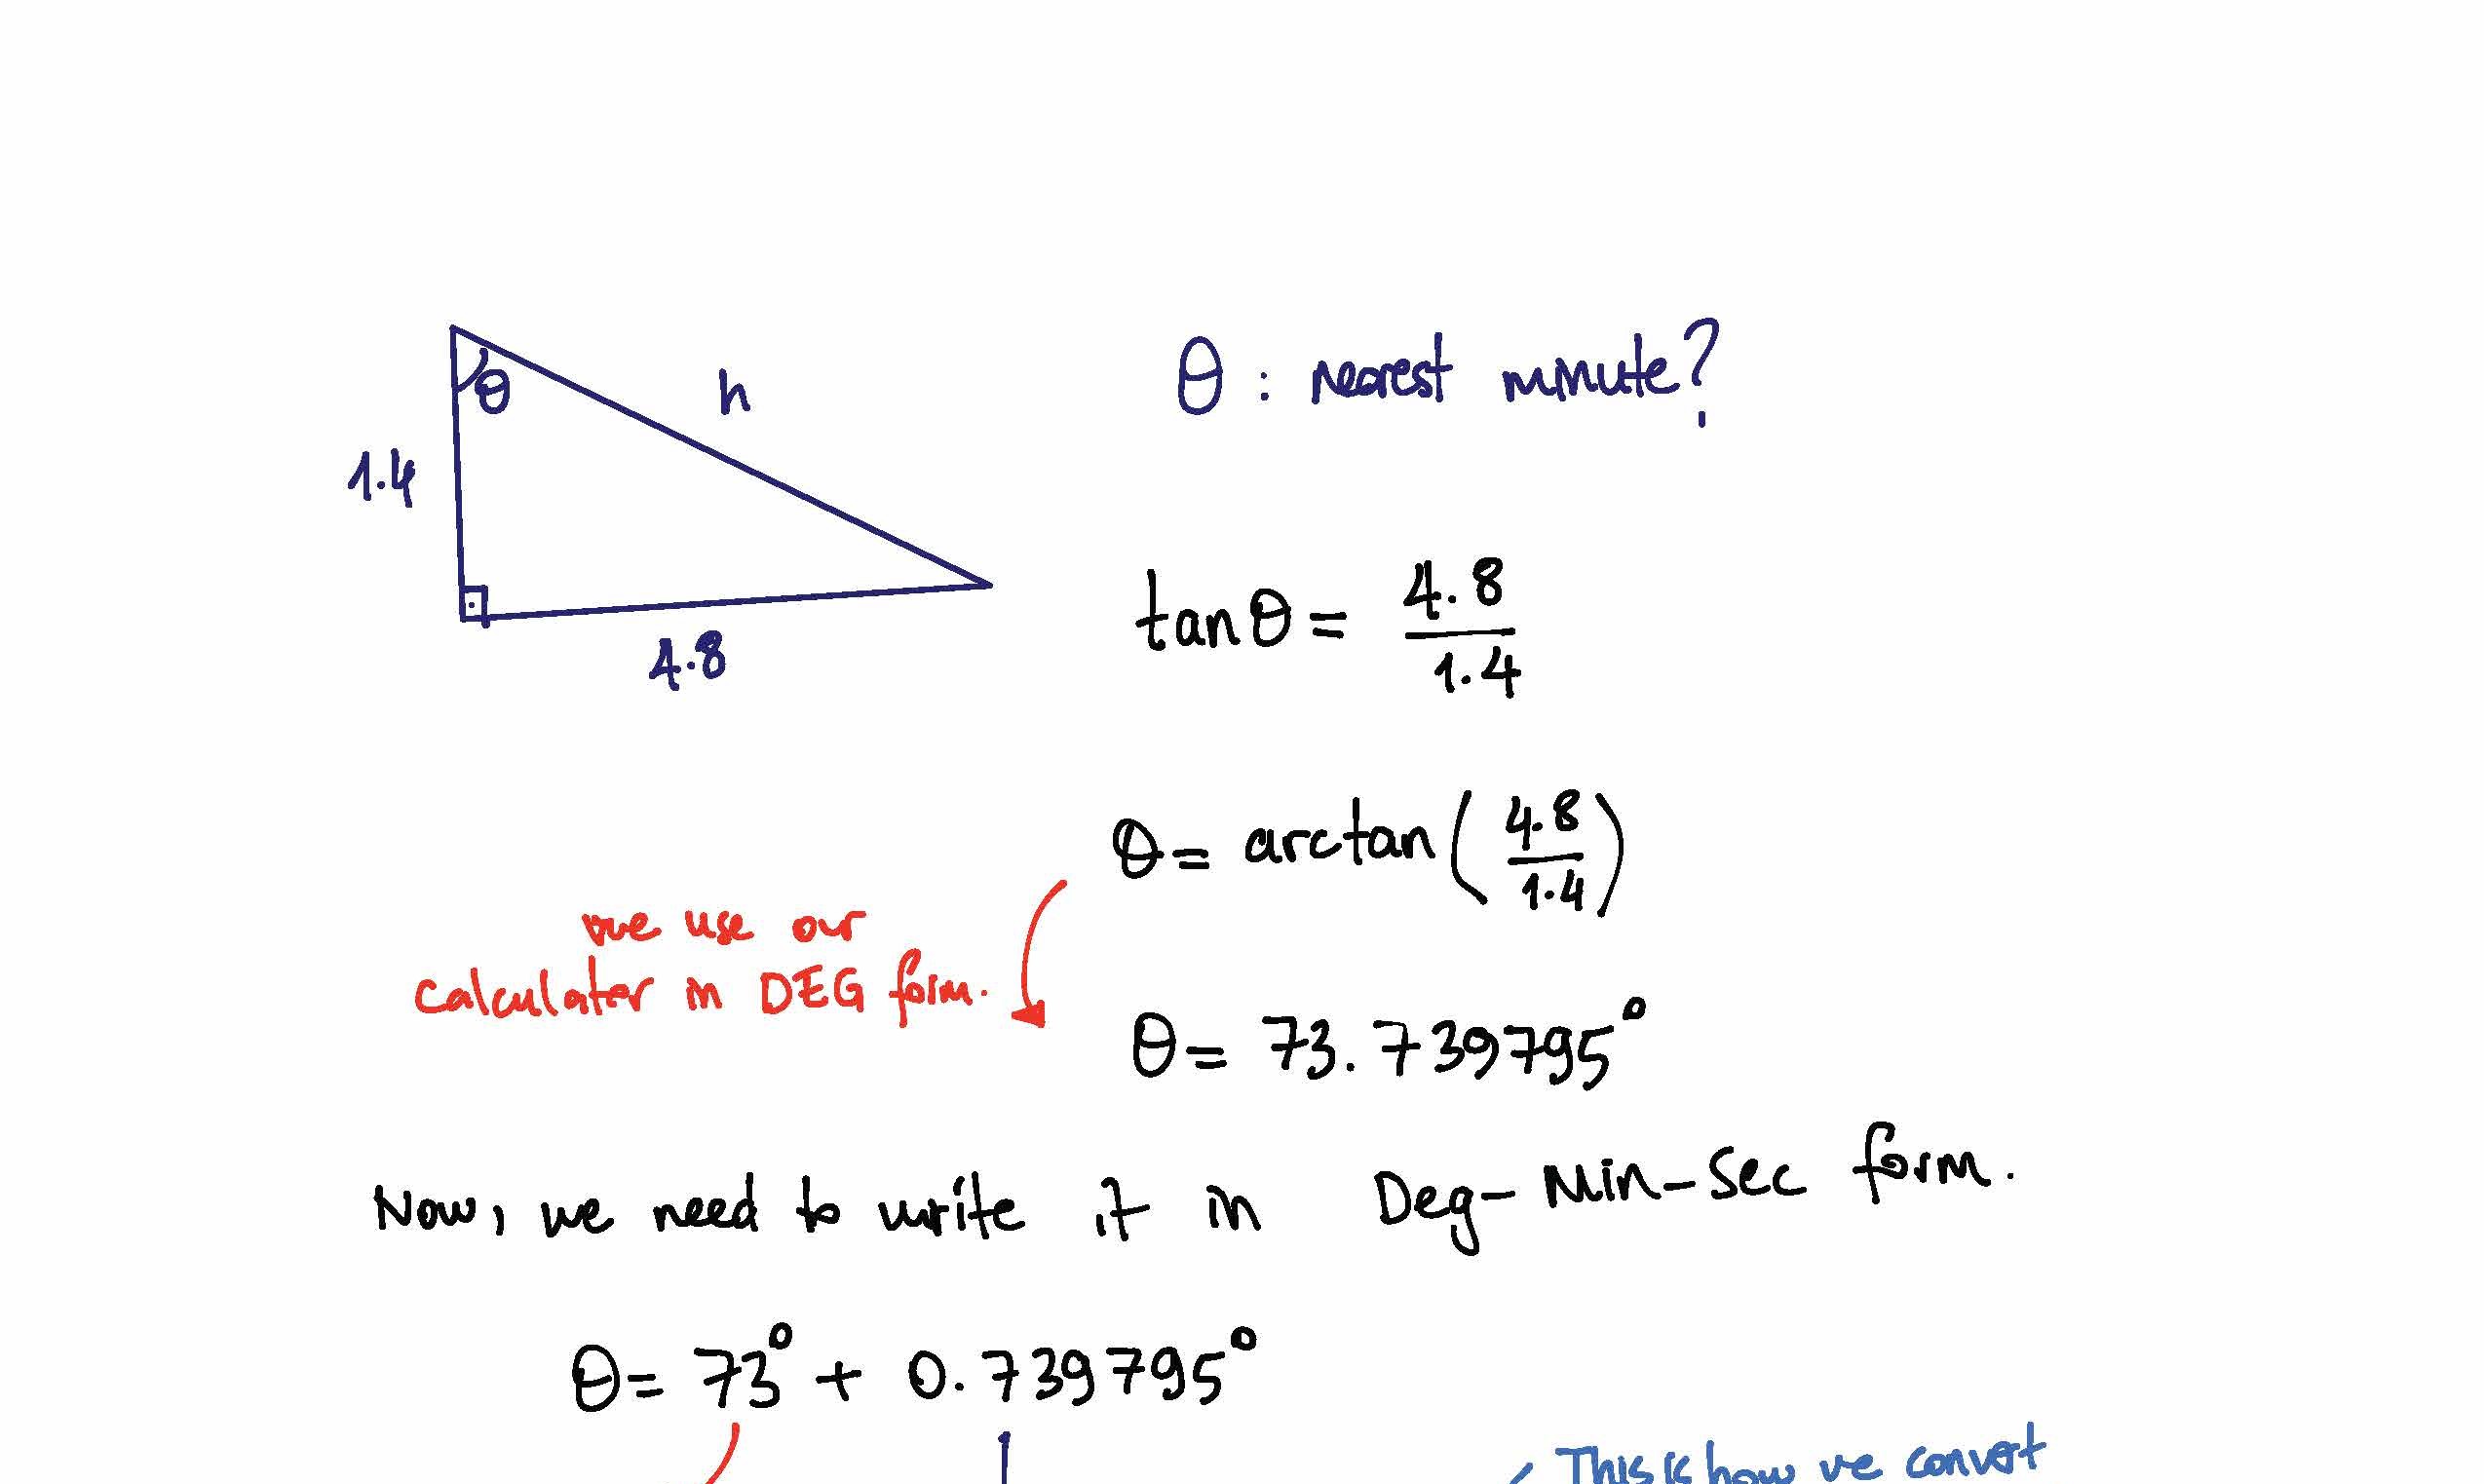 θ
h
1.4
4.8
θ : nearest minute?
tanθ = 4.8 / 1.4
θ = arctan(4.8 / 1.4)
we use our
calculater in DEG form.
θ = 73.739795°
Now, we need to write it in Deg-Min-Sec form.
θ = 73° + 0.739795°
This is how we convert